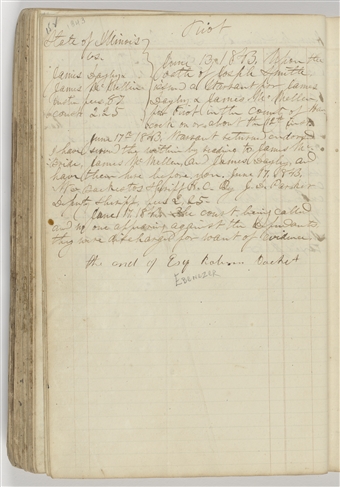 Riot
State of Illinois
vs.
James Dayly &
James McMellin
Justice fees 87
Const 2.25
June 13th 1843. Upon the
oath of Joseph Smith
issued a Warrant for James
Dayly & James McMellin
for Riot in the County of
on or about the inst
June 17th 1843. Warrant returned endorsed
I have served the within by reading to James Mc
James McMellen, and James Dayly, and
have them here before you. June 17, 1843.
Wm Backenstos Sheriff H.C. By J. D. Parker
Deputy Sheriff fees 2.25.
June 17, 1843. The court being called
and no one appearing against the Defendants
they were discharged for want of Evidence
the end of Esq Robinson Docket
Ebenezer